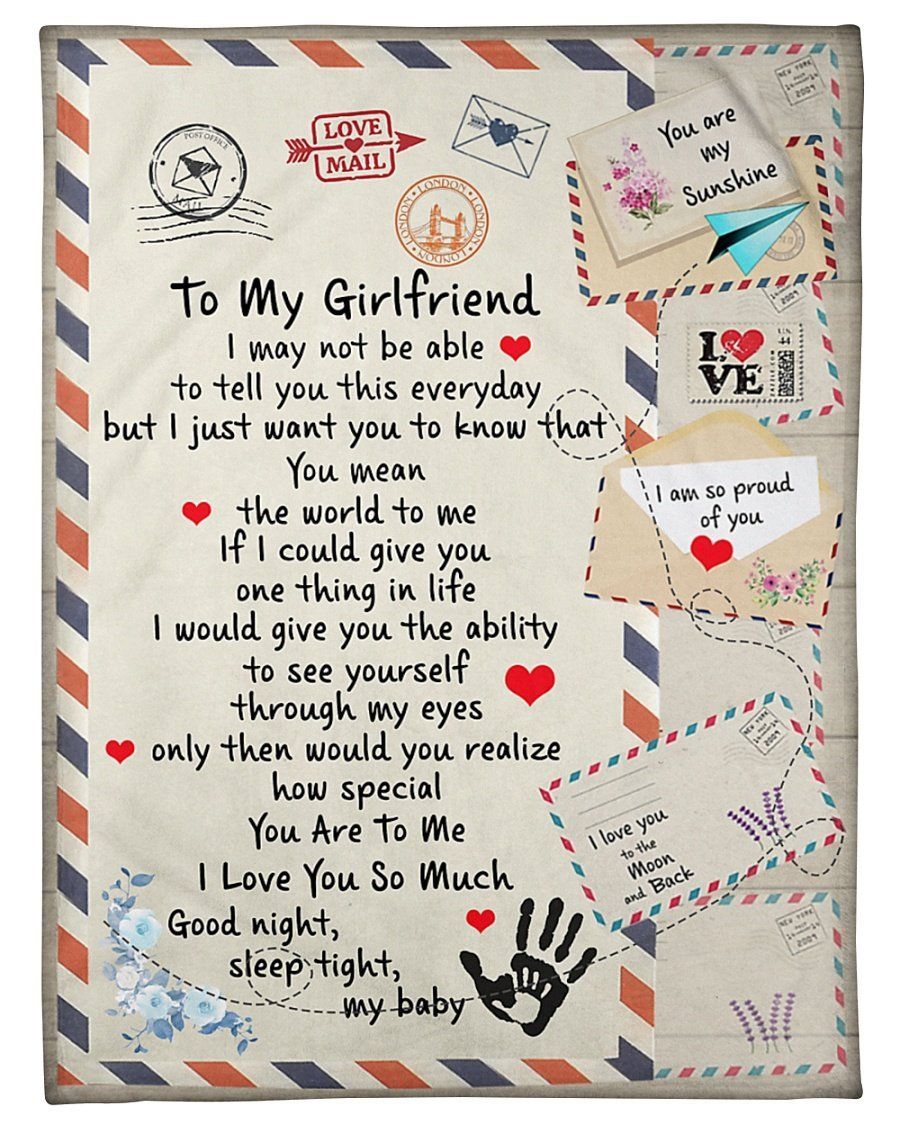 POST OFFICE
MAIL
LOVE
MAIL
LONDON • LONDON • LONDON • LONDON
To My Girlfriend
I may not be able
to tell you this everyday
but I just want you to know that
You mean
the world to me
If I could give you
one thing in life
I would give you the ability
to see yourself
through my eyes
only then would you realize
how special
You Are To Me
I Love You So Much
Good night,
sleep tight,
my baby
NEW YORK
2009
You are
my
Sunshine
2009
LOVE
U.S.
44
I am so proud
of you
NEW YORK
POST
2009
I love you
to the
Moon
and Back
NEW YORK
POST
2009